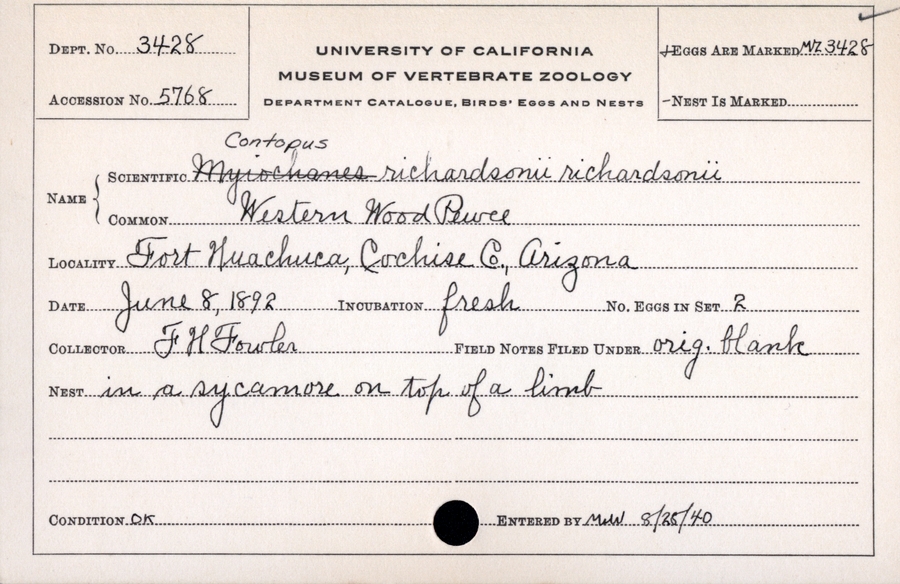 DEPT. NO. 3428
ACCESSION NO. 5768
UNIVERSITY OF CALIFORNIA
MUSEUM OF VERTEBRATE ZOOLOGY
DEPARTMENT CATALOGUE, BIRDS' EGGS AND NESTS
+EGGS ARE MARKED MVZ 3428
-NEST IS MARKED
Contopus
NAME
SCIENTIFIC Myiochanes richardsonii richardsonii
COMMON Western Wood Pewee
LOCALITY Fort Huachuca, Cochise Co., Arizona
DATE June 8, 1892 INCUBATION fresh NO. EGGS IN SET 2
COLLECTOR F H Fowler FIELD NOTES FILED UNDER orig. blank
NEST in a sycamore on top of a limb
CONDITION OK ENTERED BY 8/28/40